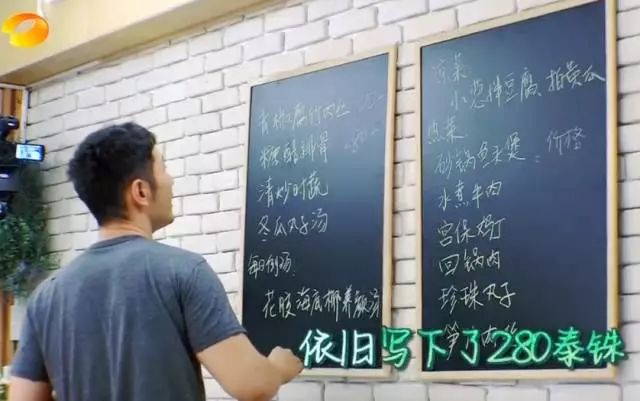 青椒腐竹肉丝 20-
糖醋排骨 280-
清炒时蔬
冬瓜丸子汤
每日例汤
花胶海底椰养颜汤
凉菜
小葱拌豆腐、拍黄瓜
热菜
砂锅鱼头煲：价格
水煮牛肉
宫保鸡丁
回锅肉
珍珠丸子
依旧写下了280泰铢